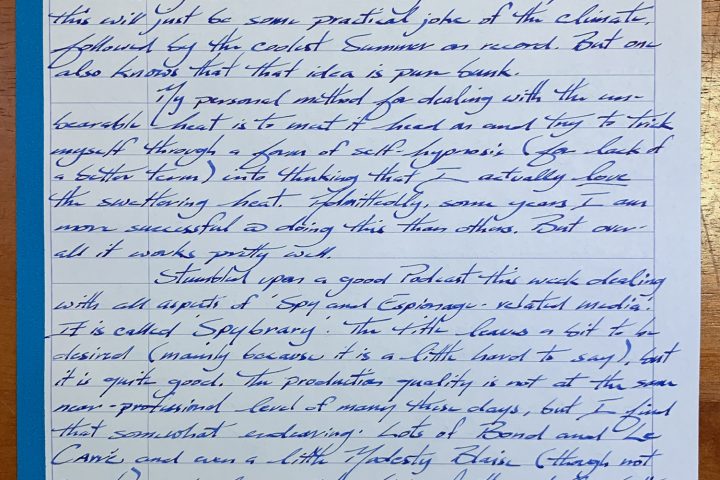 this will just be some practical joke of the climate,
followed by the coolest Summer on record. But one
also knows that that idea is pure bunk.
My personal method for dealing with the un-
bearable heat is to meet it head on and try to trick
myself through a form of self-hypnosis (for lack of
a better term) into thinking that I actually love
the sweltering heat. Admittedly, some years I am
more successful @ doing this than others. But over-
all it works pretty well.
Stumbled upon a good Podcast this week dealing
with all aspects of 'Spy and Espionage-related media'.
It is called 'Spybrary'. The title leaves a bit to be
desired (mainly because it is a little hard to say), but
it is quite good. The production quality is not at the same
near-professional level of many these days, but I find
that somewhat endearing. Lots of Bond and Le
Carré and even a little Modesty Blaise (though not